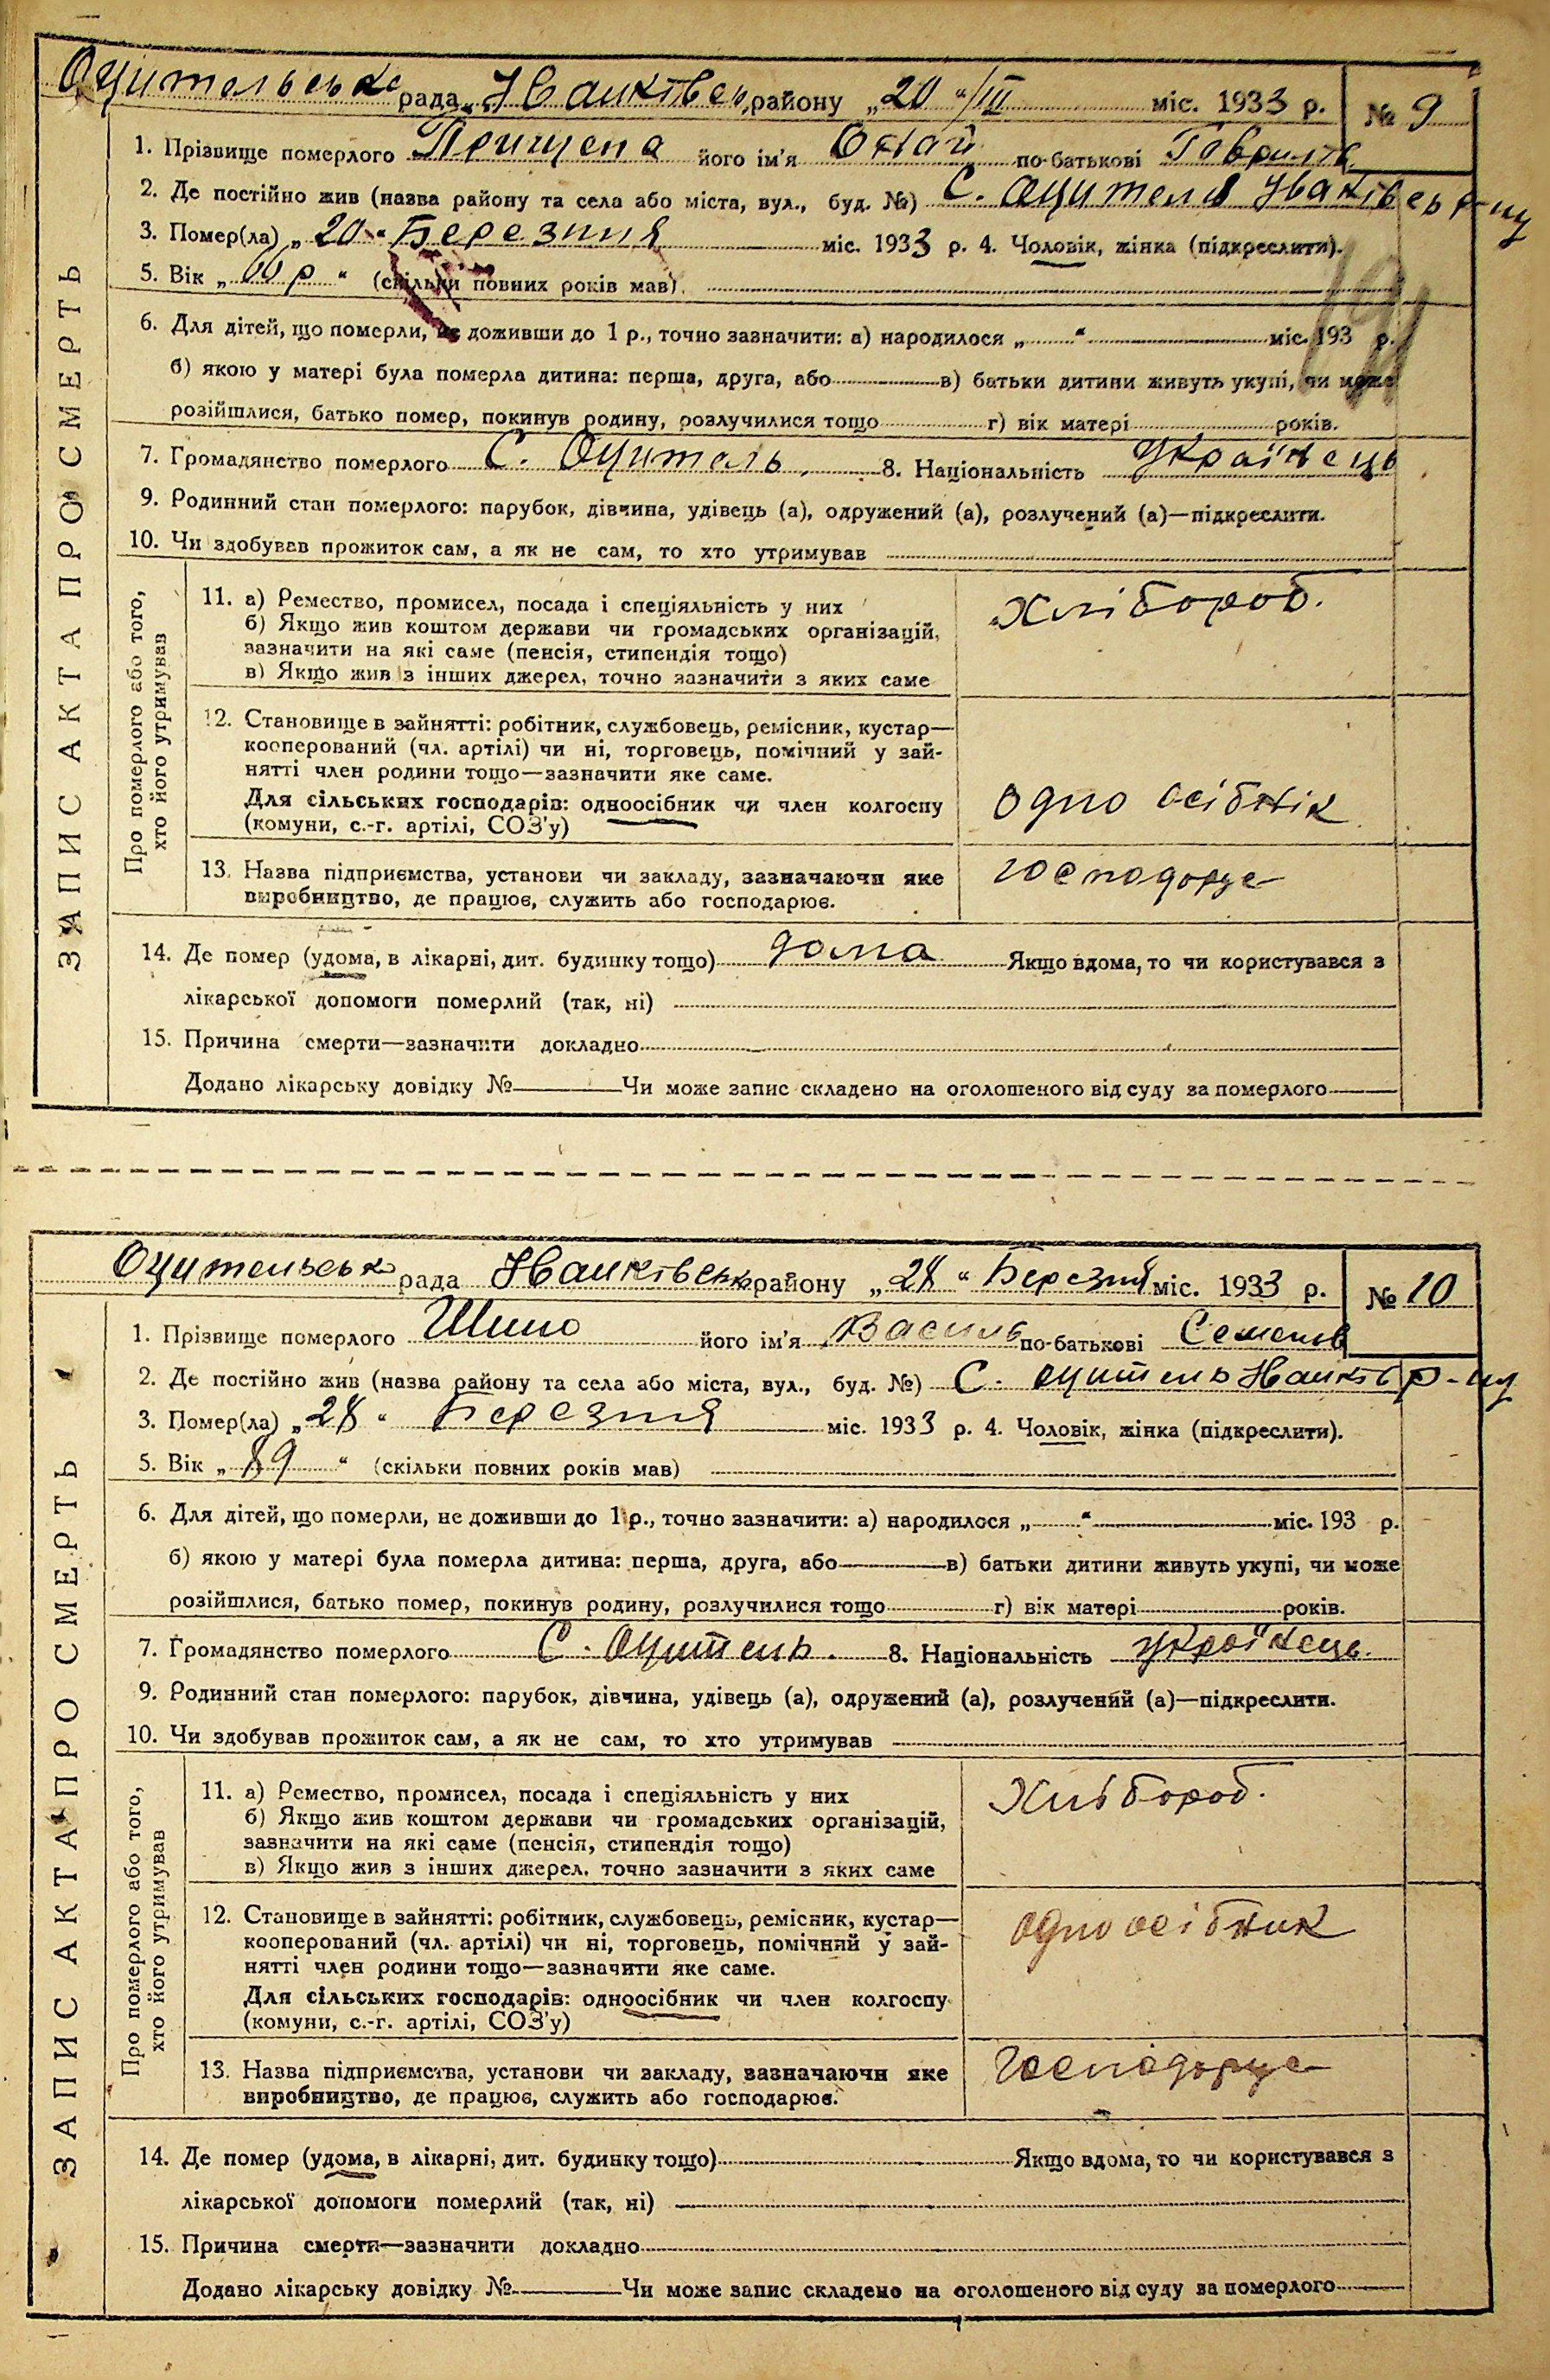 Оцительська рада Іванківськ. району „20 “/III міс. 1933 р. № 9
ЗАПИС АКТА ПРО СМЕРТЬ
1. Прізвище померлого Прищепа його ім'я по-батькові Гаврилов
2. Де постійно жив (назва району та села або міста, вул., буд. №) С. Оцитель Іванківськ р-ну
3. Помер(ла) „20“ Березния міс. 1933 р. 4. Чоловік, жінка (підкреслити).
5. Вік „ р “ (скільки повних років мав)
6. Для дітей, що померли, не доживши до 1 р., точно зазначити: а) народилося „ “ міс. 193 р.
б) якою у матері була померла дитина: перша, друга, або в) батьки дитини живуть укупі, чи може
розійшлися, батько помер, покинув родину, розлучилися тощо г) вік матері років.
7. Громадянство померлого С. Оцитель. 8. Національність Українець
9. Родинний стан померлого: парубок, дівчина, удівець (а), одружений (а), розлучений (а)—підкреслити.
10. Чи здобував прожиток сам, а як не сам, то хто утримував
Про померлого або того,
хто його утримував
11. а) Ремество, промисел, посада і спеціяльність у них Хлібороб.
б) Якщо жив коштом держави чи громадських організацій,
зазначити на які саме (пенсія, стипендія тощо)
в) Якщо жив з інших джерел, точно зазначити з яких саме
12. Становище в зайнятті: робітник, службовець, ремісник, кустар—
кооперований (чл. артілі) чи ні, торговець, помічний у зай-
нятті член родини тощо—зазначити яке саме.
Для сільських господарів: одноосібник чи член колгоспу одно осібнік
(комуни, с.-г. артілі, СОЗ'у)
13. Назва підприємства, установи чи закладу, зазначаючи яке господорує
виробництво, де працює, служить або господарює.
14. Де помер (удома, в лікарні, дит. будинку тощо) дома Якщо вдома, то чи користувався з
лікарської допомоги померлий (так, ні)
15. Причина смерти—зазначити докладно
Додано лікарську довідку № Чи може запис складено на оголошеного від суду за померлого
Оцительськ рада Іванківськ району „28“ Березня міс. 1933 р. № 10
ЗАПИС АКТА ПРО СМЕРТЬ
1. Прізвище померлого Шило його ім'я Василь по-батькові Семенов
2. Де постійно жив (назва району та села або міста, вул., буд. №) С. Оцитель Іванків р-ну
3. Помер(ла) „28“ Березния міс. 1933 р. 4. Чоловік, жінка (підкреслити).
5. Вік „89“ (скільки повних років мав)
6. Для дітей, що померли, не доживши до 1 р., точно зазначити: а) народилося „ “ міс. 193 р.
б) якою у матері була померла дитина: перша, друга, або в) батьки дитини живуть укупі, чи може
розійшлися, батько помер, покинув родину, розлучилися тощо г) вік матері років.
7. Громадянство померлого С. Оцитель. 8. Національність Українець.
9. Родинний стан померлого: парубок, дівчина, удівець (а), одружений (а), розлучений (а)—підкреслити.
10. Чи здобував прожиток сам, а як не сам, то хто утримував
Про померлого або того,
хто його утримував
11. а) Ремество, промисел, посада і спеціяльність у них Хлібороб.
б) Якщо жив коштом держави чи громадських організацій,
зазначити на які саме (пенсія, стипендія тощо)
в) Якщо жив з інших джерел, точно зазначити з яких саме
12. Становище в зайнятті: робітник, службовець, ремісник, кустар— одноосібник
кооперований (чл. артілі) чи ні, торговець, помічний у зай-
нятті член родини тощо—зазначити яке саме.
Для сільських господарів: одноосібник чи член колгоспу
(комуни, с.-г. артілі, СОЗ'у)
13. Назва підприємства, установи чи закладу, зазначаючи яке господорує
виробництво, де працює, служить або господарює.
14. Де помер (удома, в лікарні, дит. будинку тощо) Якщо вдома, то чи користувався з
лікарської допомоги померлий (так, ні)
15. Причина смерти—зазначити докладно
Додано лікарську довідку № Чи може запис складено на оголошеного від суду за померлого